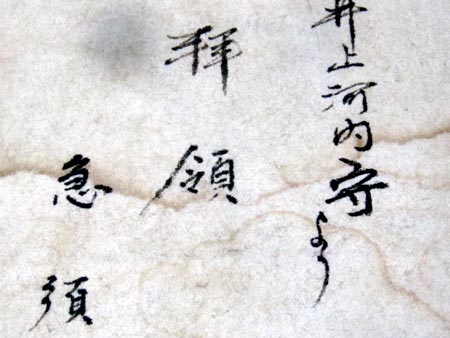 井上河内守より
拝領
急須